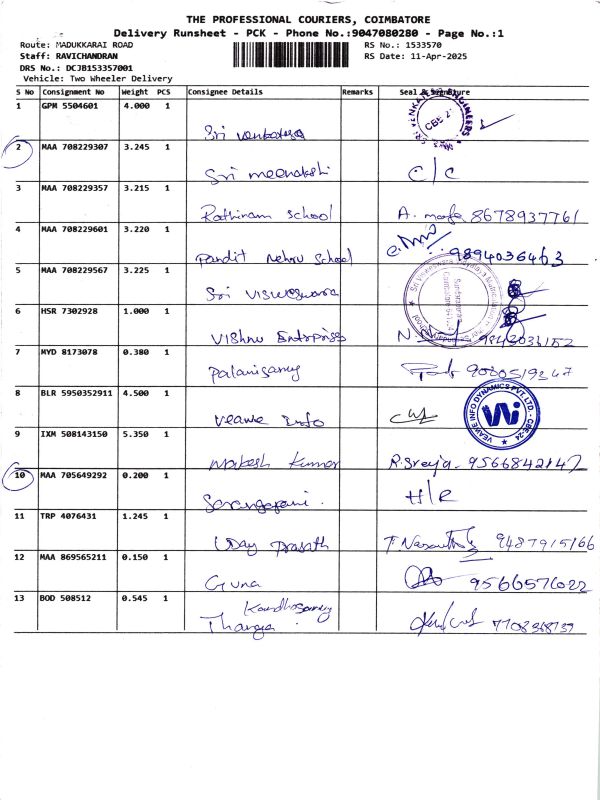 THE PROFESSIONAL COURIERS, COIMBATORE
Delivery Runsheet - PCK - Phone No.:9047080280 - Page No.:1
Route: MADUKKARAI ROAD
RS No.: 1533570
Staff: RAVICHANDRAN
RS Date: 11-Apr-2025
DRS No.: DCJB153357001
Vehicle: Two Wheeler Delivery
S No Consignment No Weight PCS Consignee Details Remarks Seal & Signature
1 GPM 5504601 4.000 1
Sri Venkatesa
CBE
2 MAA 708229307 3.245 1
Sri meenakshi C/C
3 MAA 708229357 3.215 1
Rathinam School A. 8678937761
4 MAA 708229601 3.220 1
Pandit Nehru School 9894036463
5 MAA 708229567 3.225 1
Sri Visweswara
6 HSR 7302928 1.000 1
Vishnu Enterprises
7 MYD 8173078 0.380 1
Palanisamy
8 BLR 5950352911 4.500 1
Veawe Info
VEAWE INFO DYNAMICS PVT. LTD. CBE-24
9 IXM 508143150 5.350 1
Kumar R. Sreeja. 9566842147
10 MAA 705649292 0.200 1
Sarangapani. H/R
11 TRP 4076431 1.245 1
Uday Prasath 9487915166
12 MAA 869565211 0.150 1
Guna 9566576022
13 BOD 508512 0.545 1
Kandhasamy
Thanga